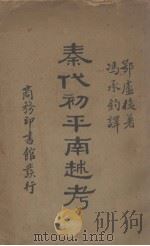 鄂盧梭著
馮承鈞譯
秦代初平南越考
商務印書館發行